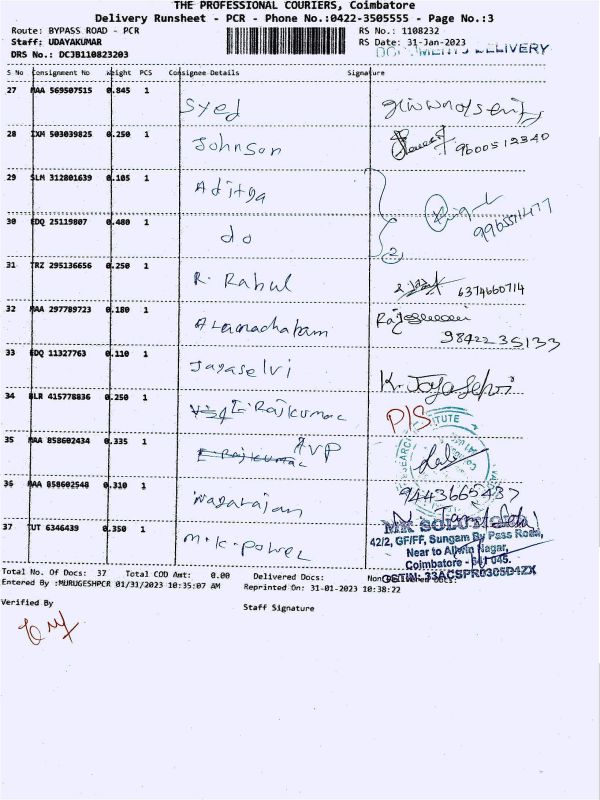 THE PROFESSIONAL COURIERS, Coimbatore
Delivery Runsheet - PCR - Phone No.:0422-3505555 - Page No.:3
Route: BYPASS ROAD - PCR RS No.: 1108232
Staff: UDAYAKUMAR RS Date: 31-Jan-2023
DRS No.: DCJB110823203 DELIVERY
S No Consignment No Weight PCS Consignee Details Signature
27 MAA 569507515 0.845 1 Syed
28 IXM 503039825 0.250 1 Johnson 9600512340
29 SLM 312801639 0.105 1 Aditya
30 EDQ 25119807 0.480 1 do 2
31 TRZ 295136656 0.250 1 R. Rahul 6374660714
32 MAA 297789723 0.180 1 9842235133
33 EDQ 11327763 0.110 1 Jayaselvi K. Jayaselvi
34 BLR 415778836 0.250 1 E. Rajkumar P/S
35 MAA 858602434 0.335 1 E. Rajkumar AVP
36 MAA 858602548 0.310 1 Nagarajan 9443665437
37 TUT 6346439 0.350 1 M.K. Power
MK SOLUTIONS
42/2, GF/FF, Sungam By Pass Road,
Near to Alwin Nagar,
Coimbatore - 641 045.
GSTIN: 33ACSPR0305D4ZX
Total No. Of Docs: 37 Total COD Amt: 0.00 Delivered Docs: Non Delivered Docs:
Entered By :MURUGESHPCR 01/31/2023 10:35:07 AM Reprinted On: 31-01-2023 10:38:22
Verified By Staff Signature